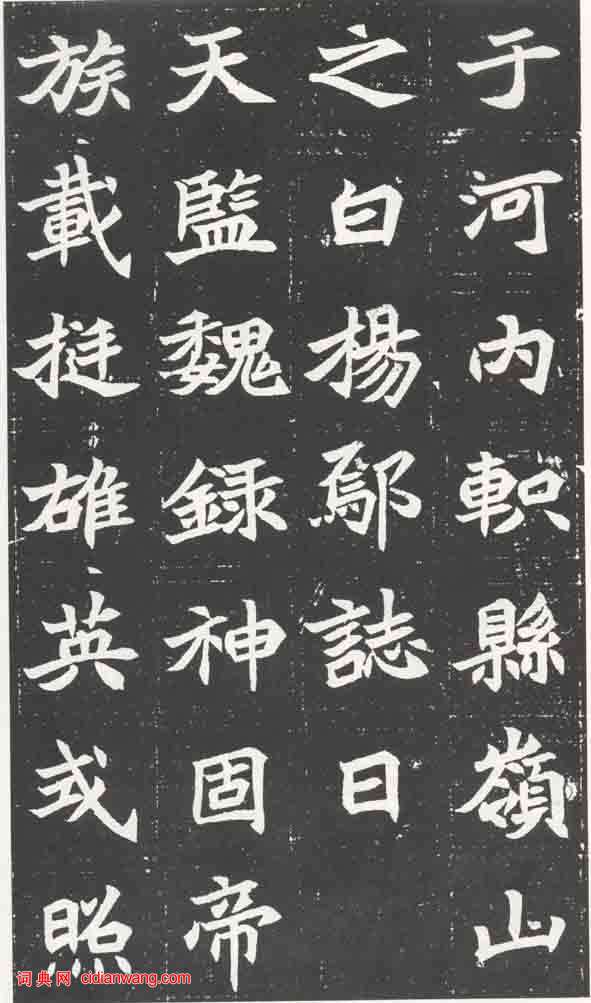 于河内軹縣嶺山
之白楊鄔誌曰
天監魏録神固帝
族載挺雄英或照
词典网 cidianwang.com